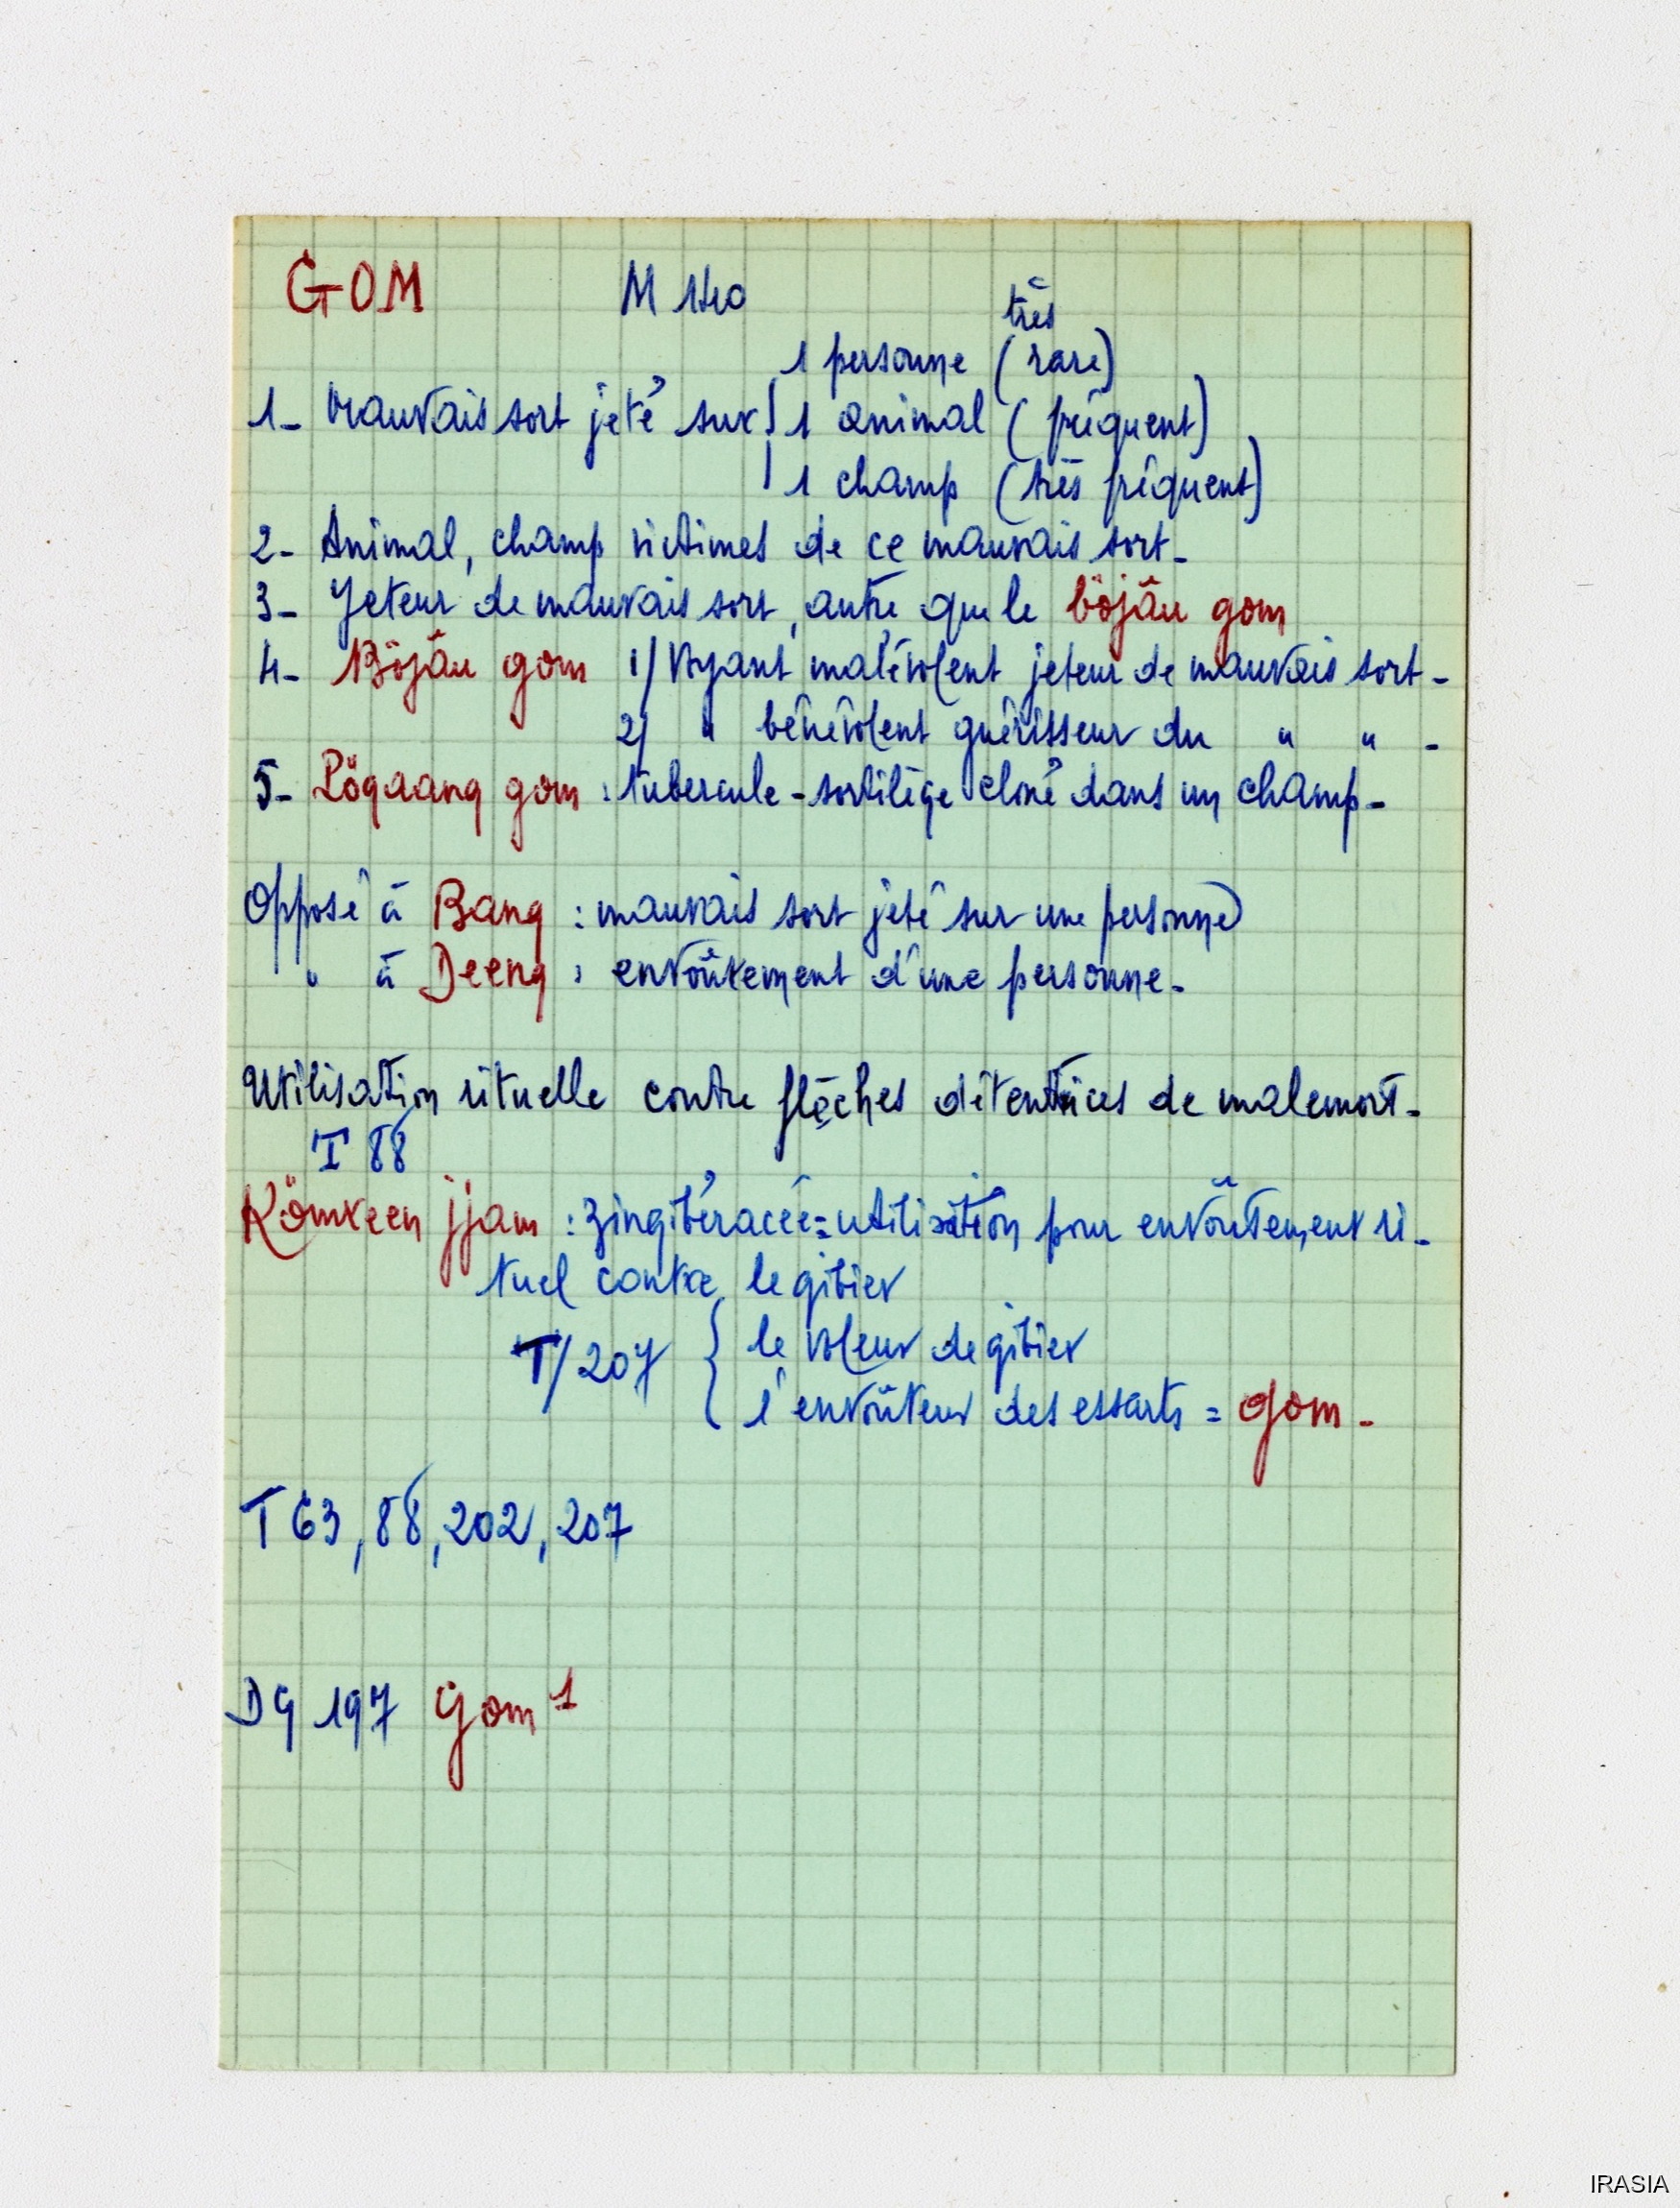 GOM M 140
très
1 personne (rare)
1- Mauvais sort jeté sur 1 animal (fréquent)
1 champ (très fréquent)
2- Animal, champ victimes de ce mauvais sort-
3- Jeteur de mauvais sort, autre que le böjâu gom
4- Böjâu gom 1/ Voyant malévolent jeteur de mauvais sort-
2/ " bénévolent guérisseur du " " -
5- Rögaang gom : tubercule-sortilège cloné dans un champ-
Opposé à Bang : mauvais sort jeté sur une personne
" à Deeng : envoûtement d'une personne-
Utilisation rituelle contre flèches détentrices de malemort-
T 88
Kömkeen jjam : zingibéracée = utilisation pour envoûtement ri-
tuel contre le gibier
T/207 { le voleur de gibier
l'envoûteur des essarts = gom-
T 63, 88, 202, 207
DG 197 gom 1
IRASIA